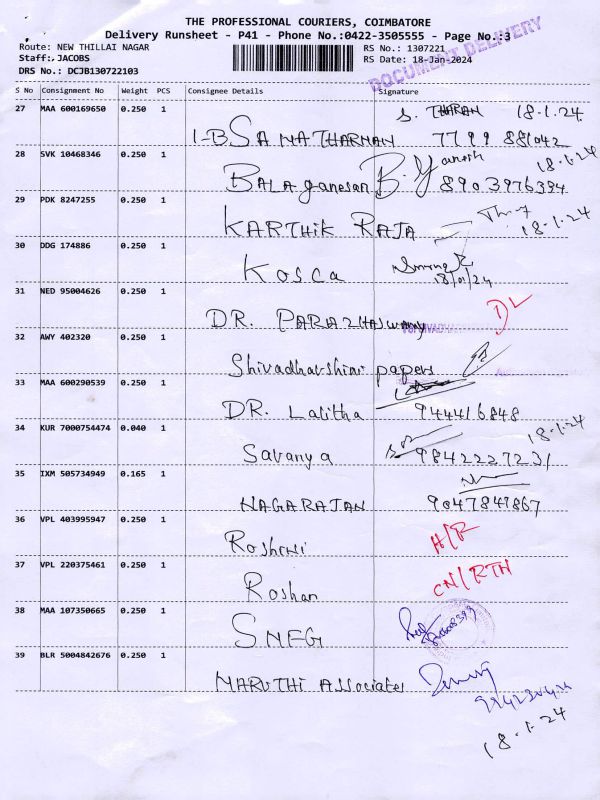 THE PROFESSIONAL COURIERS, COIMBATORE
Delivery Runsheet - P41 - Phone No.:0422-3505555 - Page No.:3
Route: NEW THILLAI NAGAR RS No.: 1307221
Staff:, JACOBS RS Date: 18-Jan-2024
DRS No.: DCJB130722103
DOCUMENT DELIVERY
S No Consignment No Weight PCS Consignee Details Signature
27 MAA 600169650 0.250 1
S. THARAN 18.1.24
7799 881042
28 SVK 10468346 0.250 1
18.1.24
BALAganesan 8903976394
29 PDK 8247255 0.250 1
KARTHIK RAJA 18.1.24
30 DDG 174886 0.250 1
Kosca 18/01/24
31 NED 95004626 0.250 1
DL
DR.
32 AWY 402320 0.250 1
Shivadharshini papers
33 MAA 600290539 0.250 1
DR. Lalitha 944416848
34 KUR 7000754474 0.040 1
18.1.24
Savanya 9842227231
35 IXM 505734949 0.165 1
NAGARAJAN 9047847867
36 VPL 403995947 0.250 1
Roshini H/R
37 VPL 220375461 0.250 1
Roshan CN/RTH
38 MAA 107350665 0.250 1
39 BLR 5004842676 0.250 1
MARUTHI Associates
18.1.24